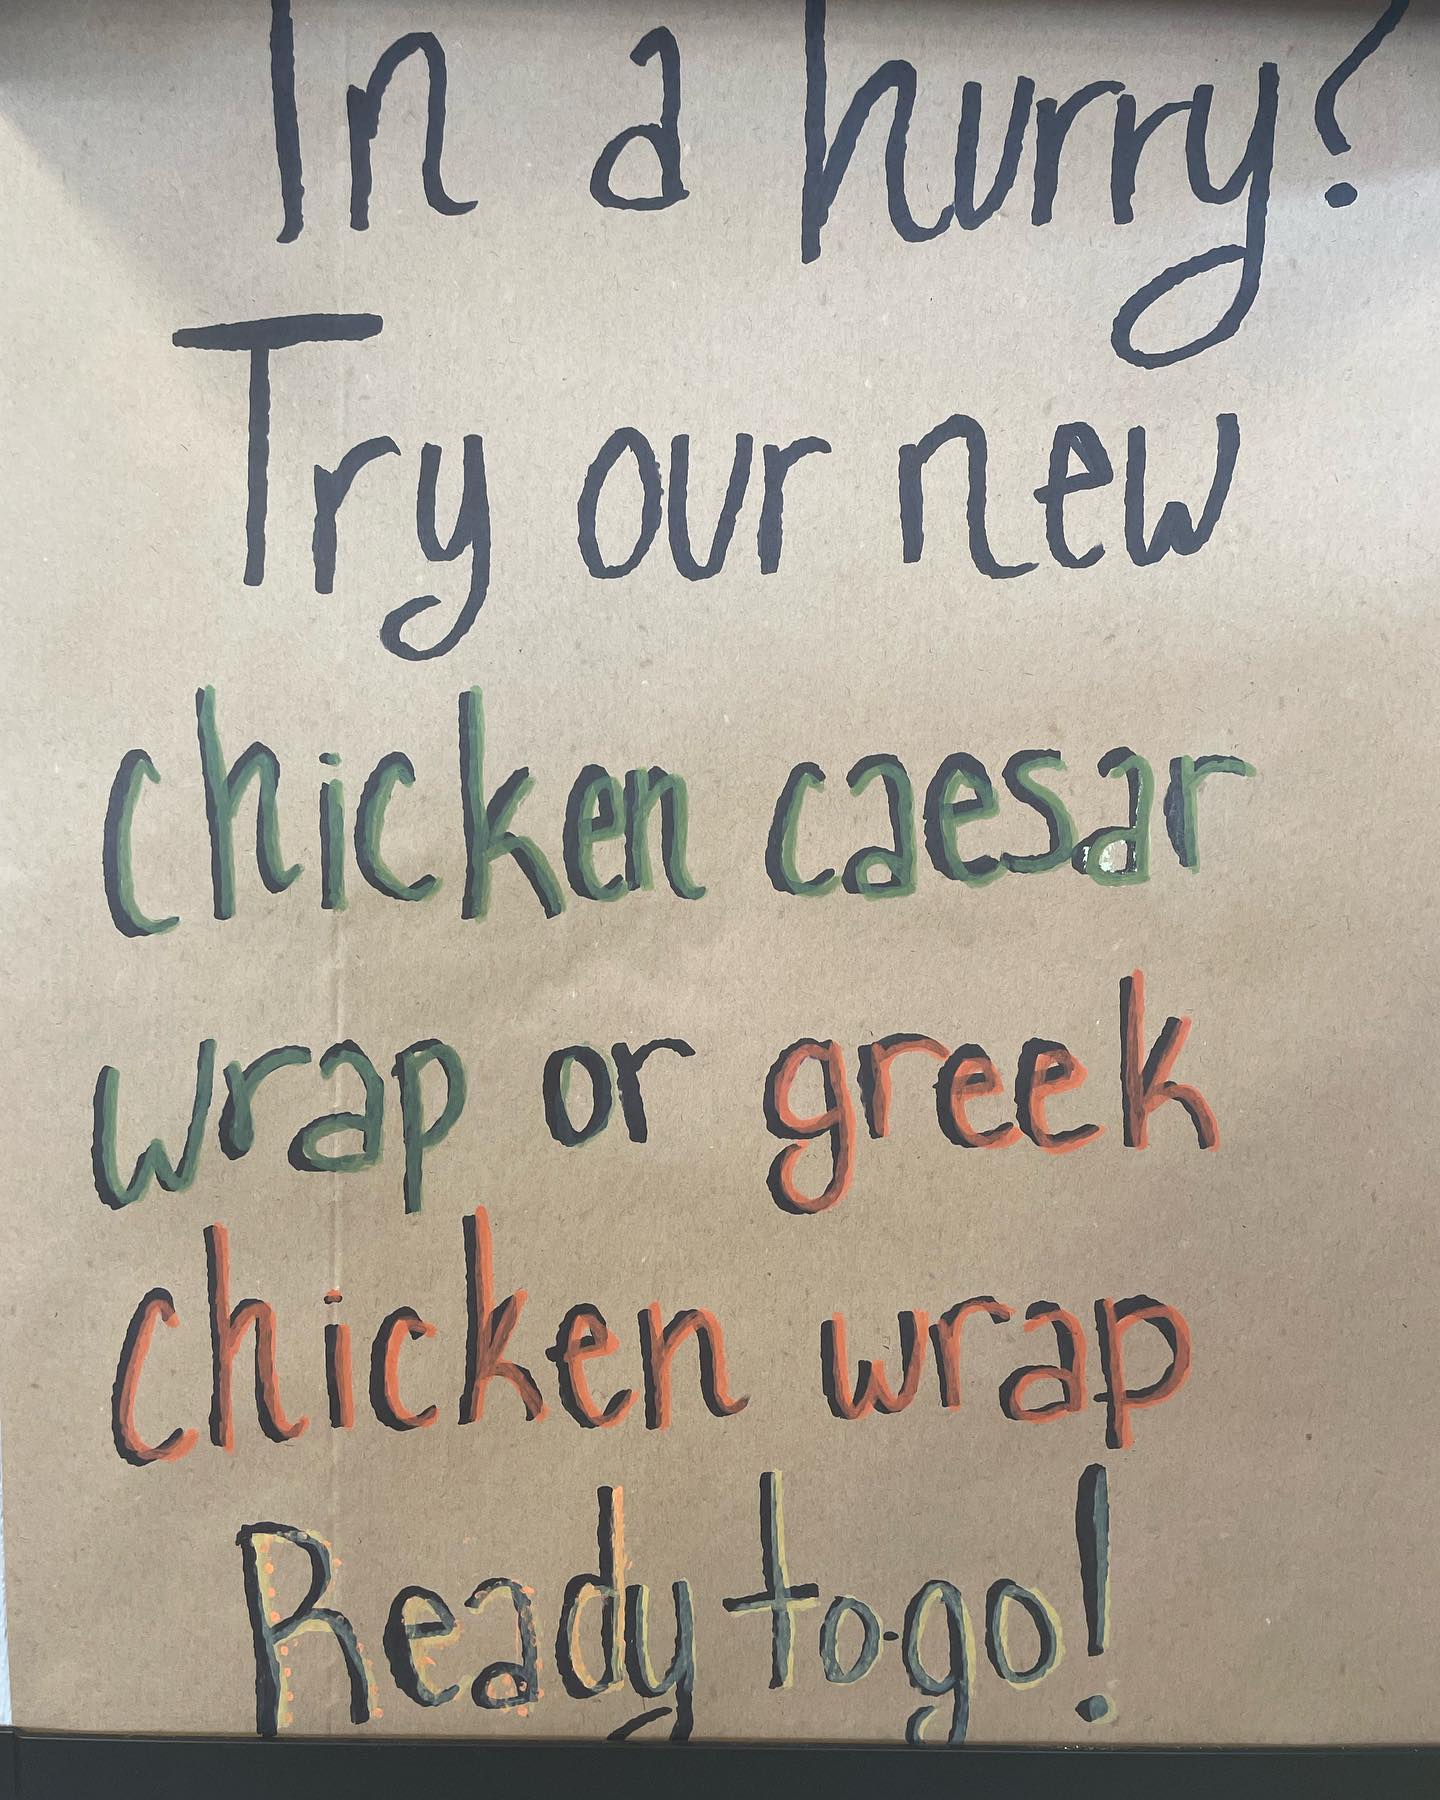 In a hurry?
Try our new
chicken caesar
wrap or greek
chicken wrap
Ready to-go!